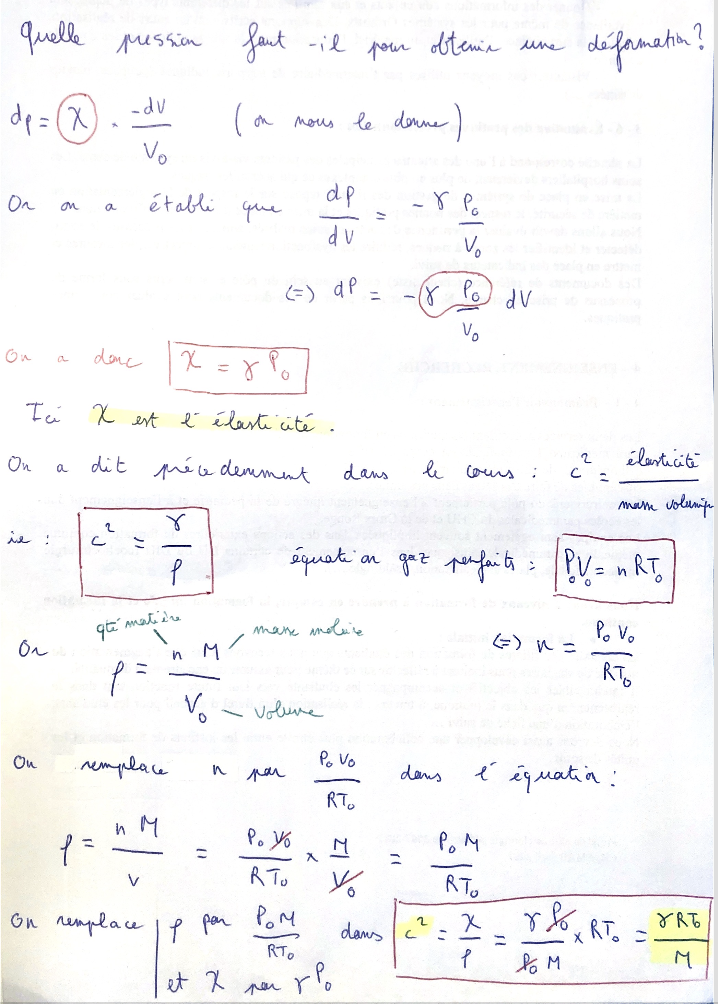 Quelle pression faut-il pour obtenir une déformation?
dp = χ · -dV/V₀ (on nous le donne)
Or on a établi que dP/dV = - γ P₀/V₀
(=) dP = - γ P₀/V₀ dV
On a donc χ = γ P₀
Ici χ est l'élasticité.
On a dit précedemment dans le cours : c² = élasticité/masse volumiq
ie : c² = γ/ρ équation gaz parfaits : P₀V₀ = n RT₀
qté matière masse molaire
Or ρ = n M/V₀ (=) n = P₀ V₀/RT₀
volume
On remplace n par P₀ V₀/RT₀ dans l'équation :
ρ = n M/V = P₀ V₀/RT₀ × M/V₀ = P₀ M/RT₀
On remplace ρ par P₀ M/RT₀ dans c² = χ/ρ = γ P₀/P₀ M × RT₀ = γ RT₀/M
et χ par γ P₀